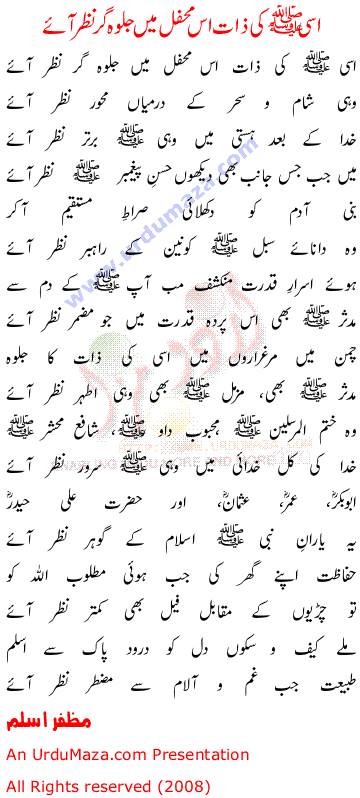 اسی ﷺ کی ذات اس محفل میں جلوہ گر نظر آئے
اسی ﷺ کی ذات اس محفل میں جلوہ گر نظر آئے
وہی شام و سحر کے درمیاں محور نظر آئے
خدا کے بعد ہستی میں وہی ﷺ برتر نظر آئے
میں جب جس جانب بھی دیکھوں حسنِ پیغمبر ﷺ نظر آئے
بنی آدم کو دکھلائی صراطِ مستقیم آکر
وہ دانائے سبل ﷺ کونین کے راہبر نظر آئے
ہوئے اسرارِ قدرت منکشف سب آپ ﷺ کے دم سے
مدثر ﷺ بھی اس پردہ قدرت میں جو مضمر نظر آئے
چمن میں مرغزاروں میں اسی کی ذات کا جلوہ
مدثر ﷺ بھی، مزمل ﷺ بھی وہی اطہر نظر آئے
وہ ختم المرسلین ﷺ، محبوب داور ﷺ، شافع محشر ﷺ
خدا کی کل خدائی میں وہی ﷺ سرور نظر آئے
ابوبکرؓ، عمرؓ، عثمانؓ، اور حضرت علی حیدرؓ
یہ یارانِ نبی ﷺ اسلام کے گوہر نظر آئے
حفاظت اپنے گھر کی جب ہوئی مطلوب اللہ کو
تو چڑیوں کے مقابل فیل بھی کمتر نظر آئے
ملے کیف و سکوں دل کو درود پاک سے اسلم
طبیعت جب غم و آلام سے مضطر نظر آئے
مظفر اسلم
An UrduMaza.com Presentation
All Rights reserved (2008)
www.urdumaza.com